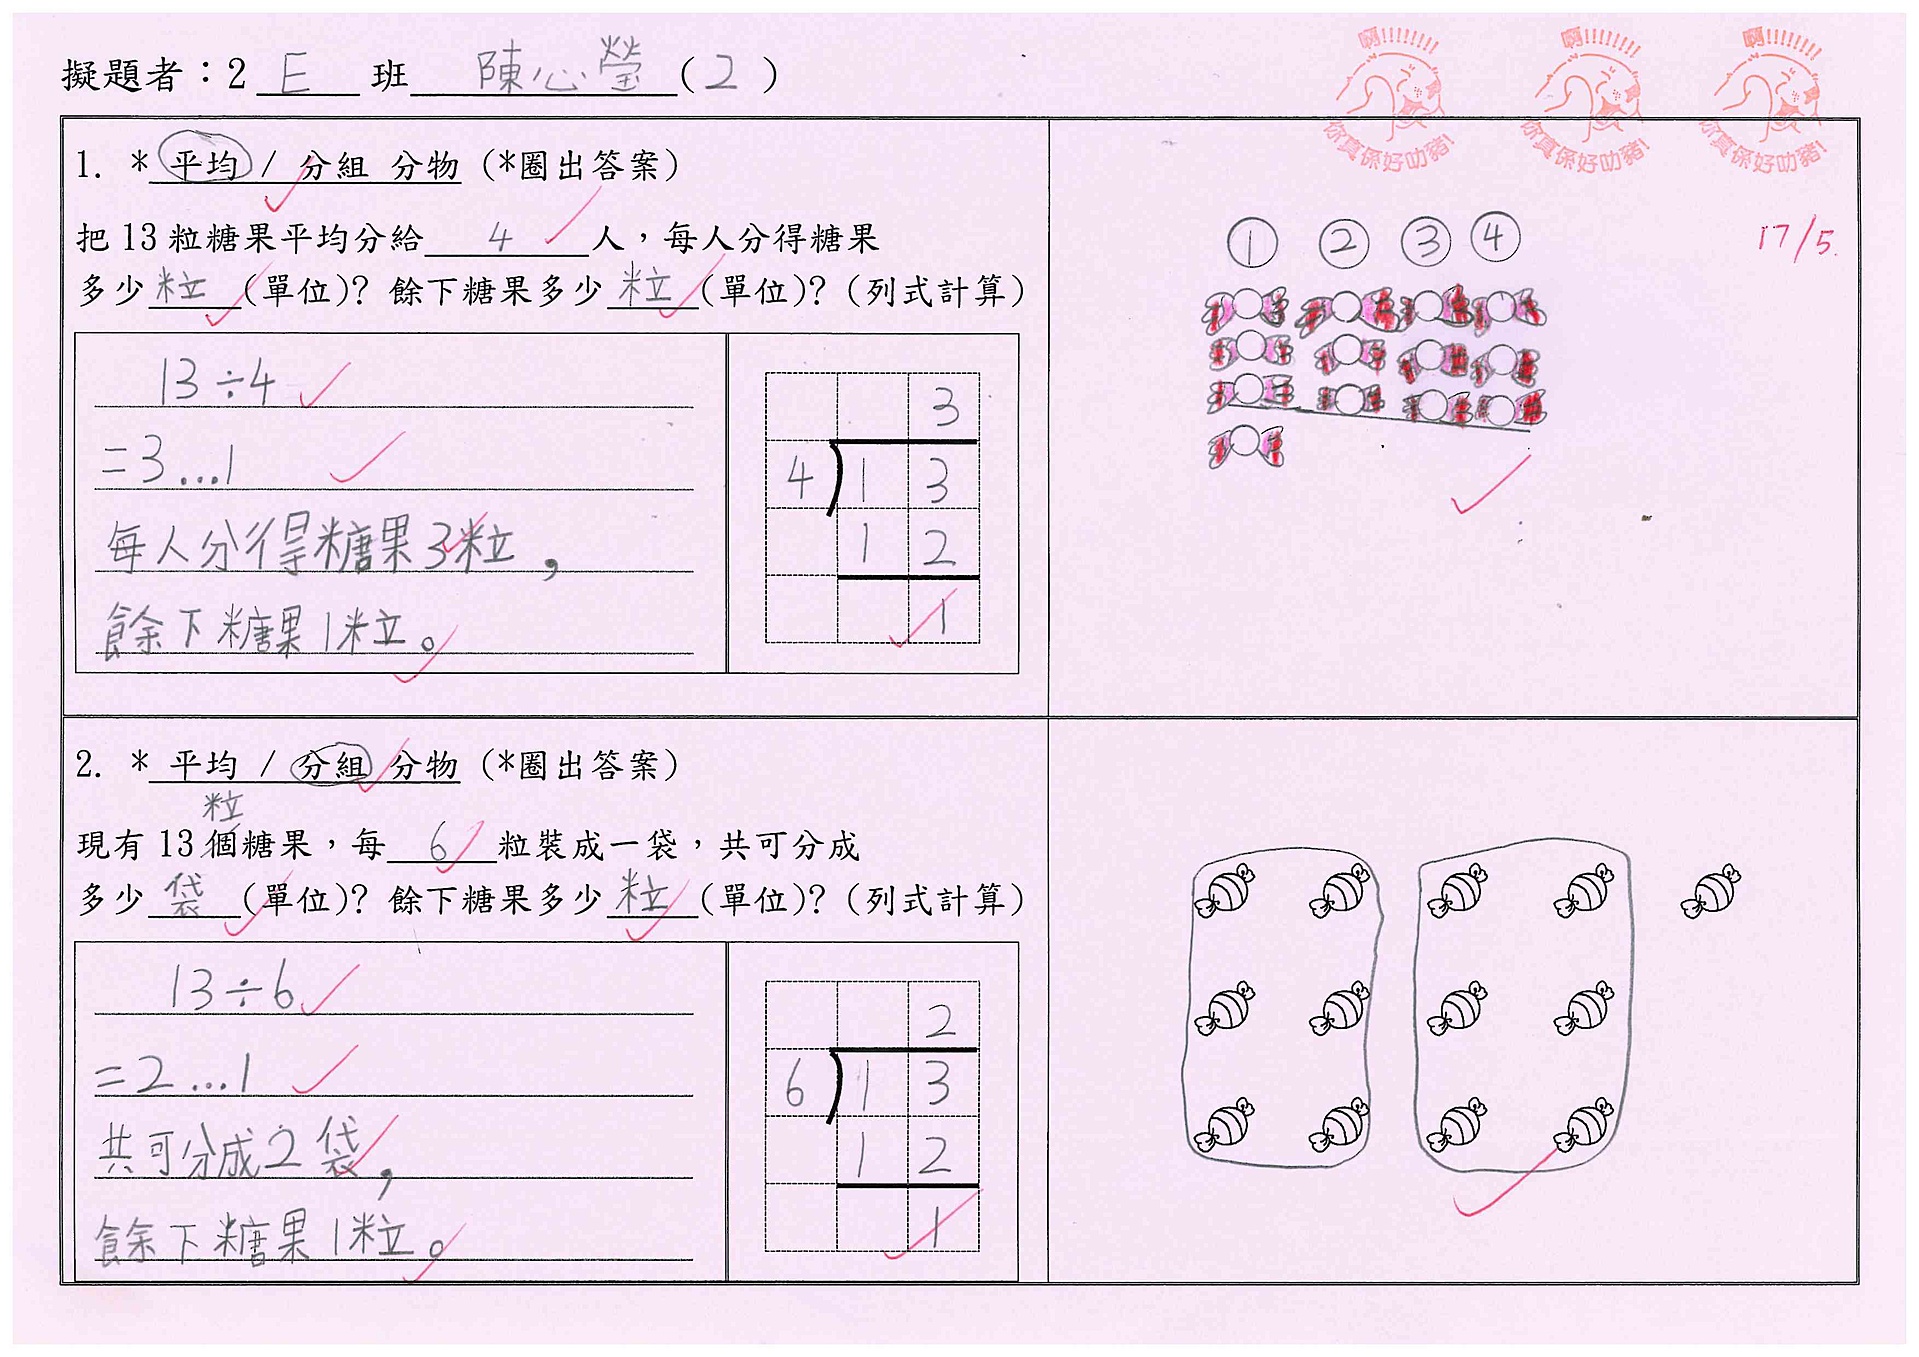 擬題者：2 E 班 陳心瑩 (2)
啊!!!!!!!! 你真係好叻豬!
啊!!!!!!!! 你真係好叻豬!
啊!!!!!!!! 你真係好叻豬!
1. * 平均 / 分組 分物 (*圈出答案)
把 13 粒糖果平均分給 4 人，每人分得糖果
多少 粒 (單位)? 餘下糖果多少 粒 (單位)? (列式計算)
13÷4
=3...1
每人分得糖果3粒，
餘下糖果1粒。
3
4 1 3
1 2
1
① ② ③ ④
17/5.
2. * 平均 / 分組 分物 (*圈出答案)
粒
現有 13 個糖果，每 6 粒裝成一袋，共可分成
多少 袋 (單位)? 餘下糖果多少 粒 (單位)? (列式計算)
13÷6
=2...1
共可分成2袋，
餘下糖果1粒。
2
6 1 3
1 2
1